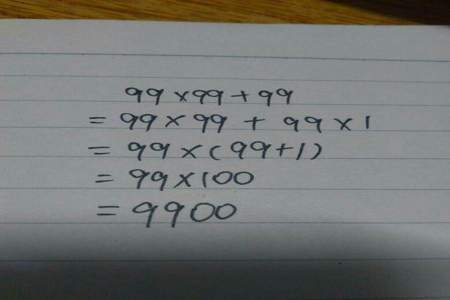 99×99+99
= 99×99 + 99×1
= 99×(99+1)
= 99×100
= 9900